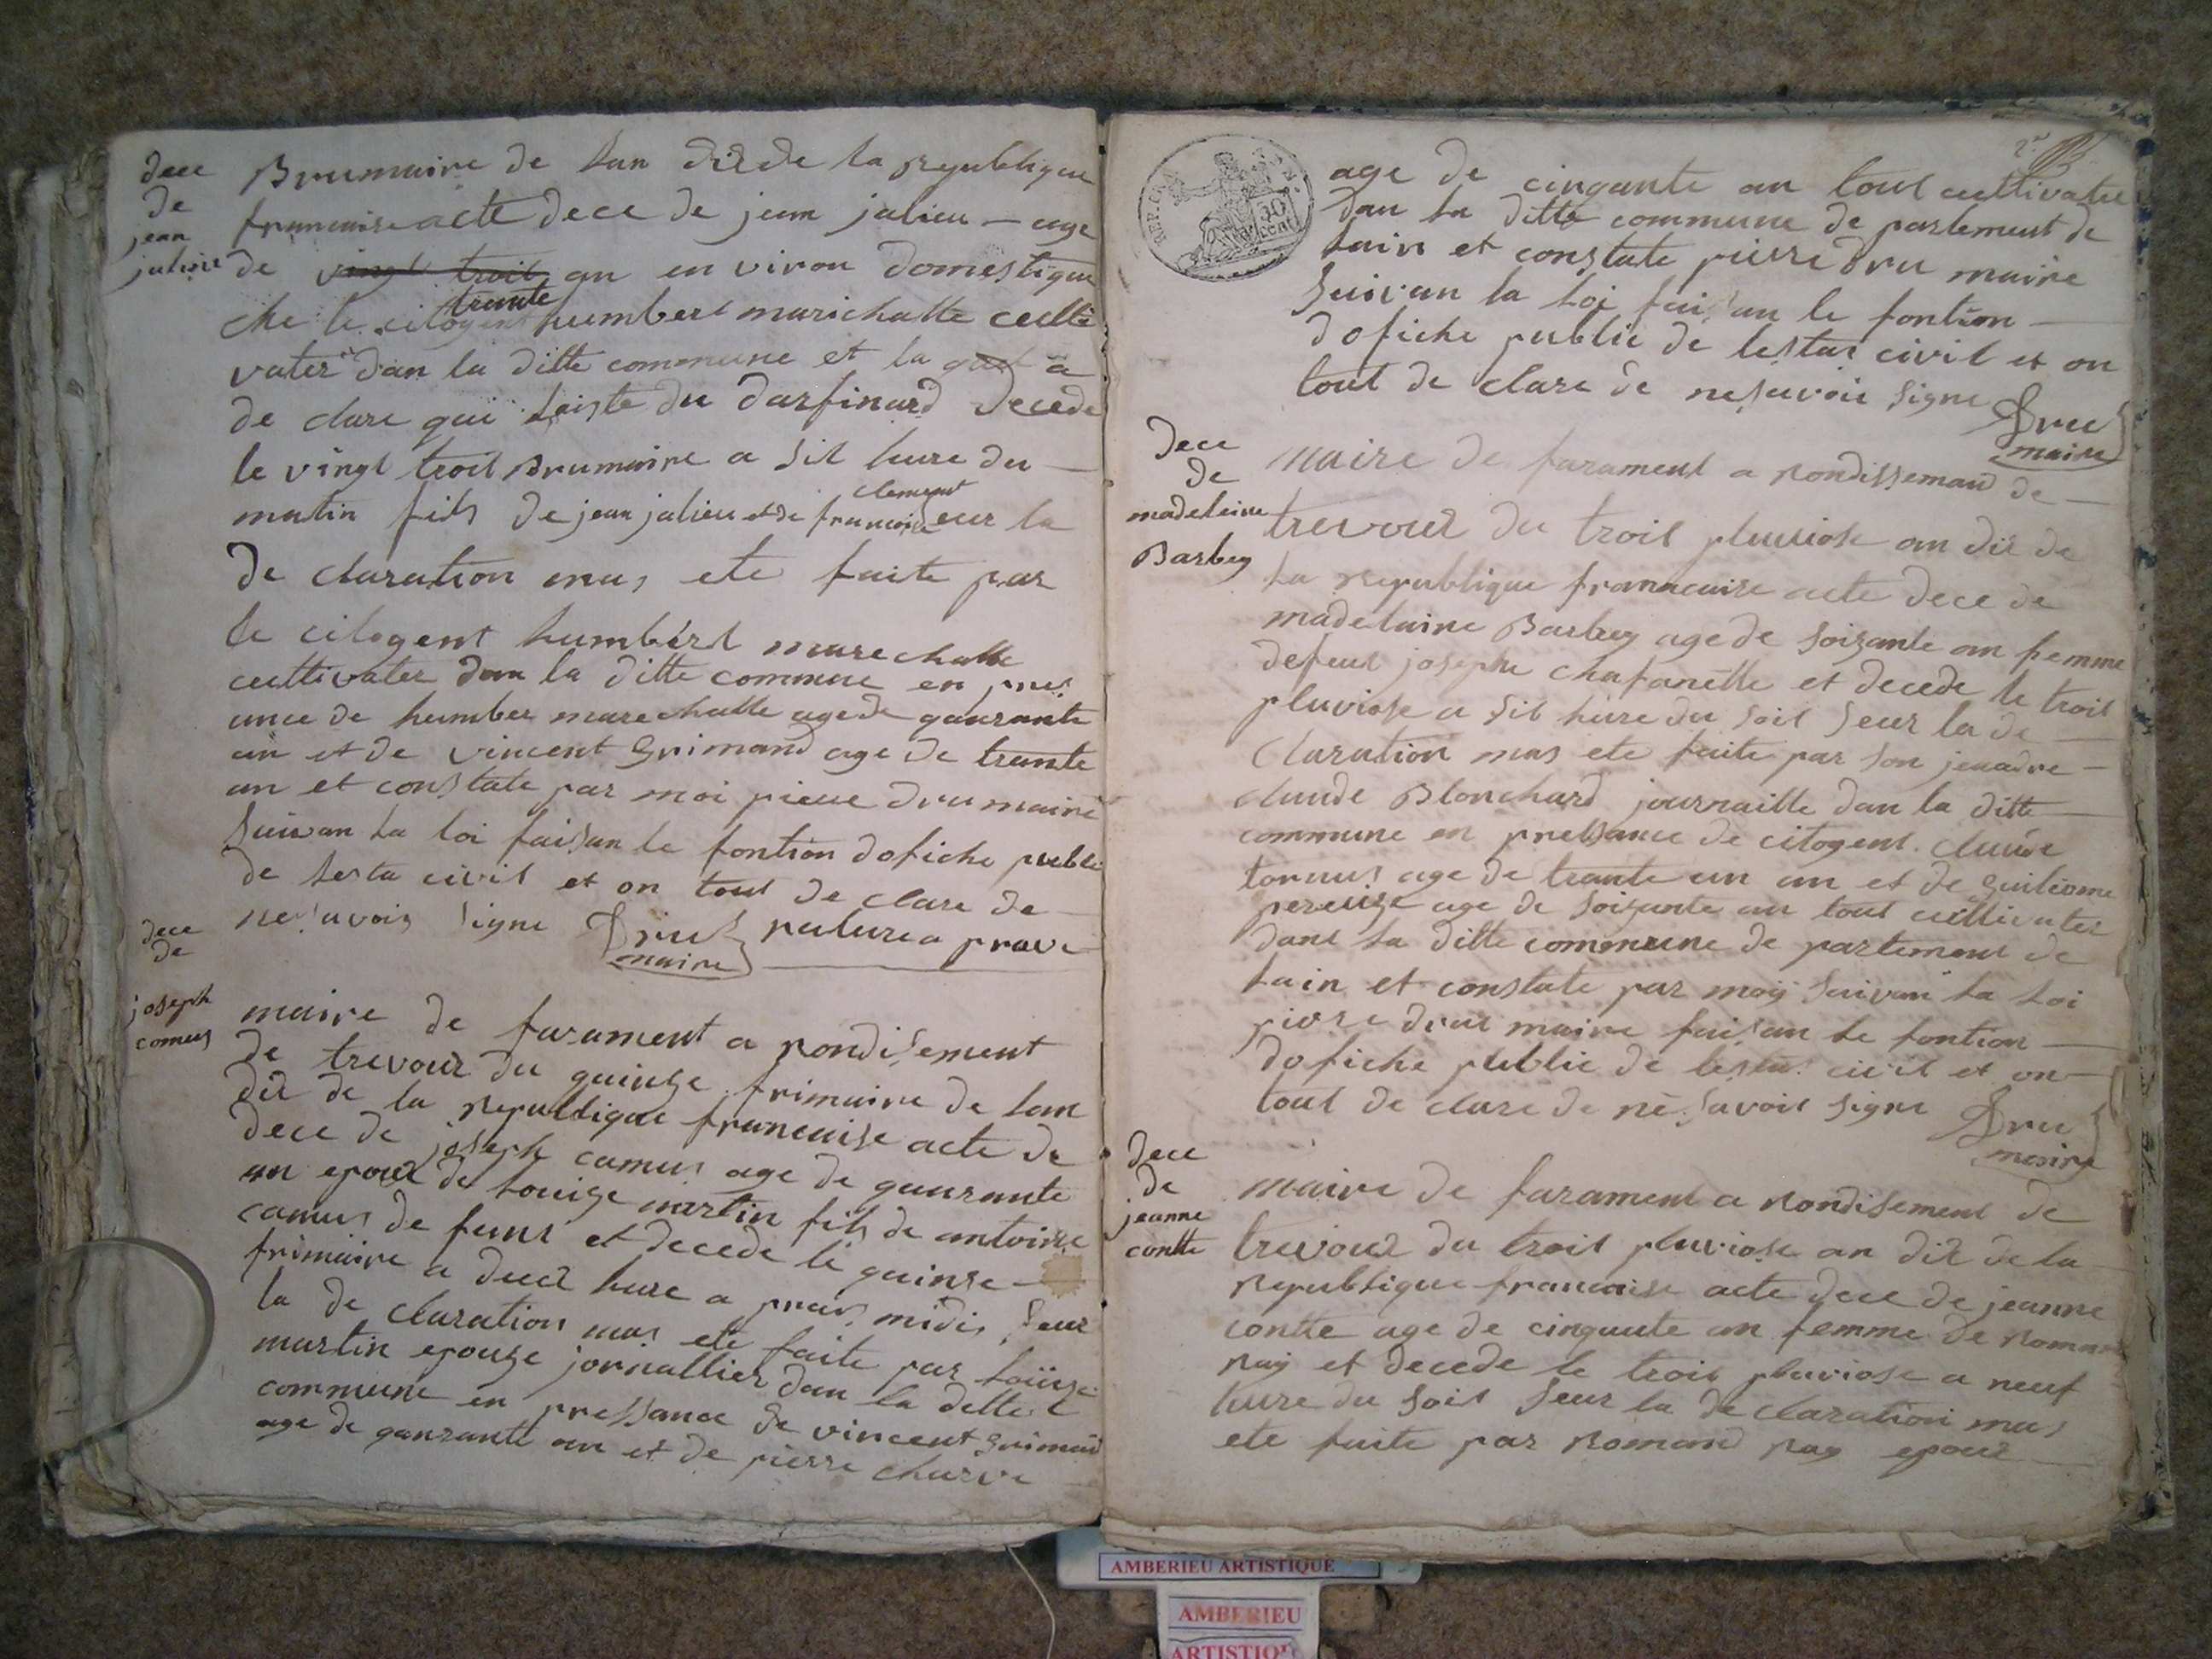 dece
de
jean
julien
Brumaire de lan dix de la republique
francaise acte dece de jean julien – age
de vingt troit an environ domestique
trante
che le citogent humbert marichalle culti
vater dan la ditte commune et la quel a
de clare qui leiste du darfinard decede
le vingt troit Brumaire a sit heure du –
clement
matin fils de jean julien et de francoise seur la
de claration mas ete faite par
le citogent humbert marechalle
cultivater dan la ditte commune en pres
ance de humber marechalle age de quarante
an et de vincent Grimand age de trante
an et constate par moi pieue dru maire
suivan la loi faisan le fontion dofiche public
de lesta civil et on tout de clare de
ne savois signe Dru rature a prouve
maire
dece
de
joseph
comus
maire de farament a rondisement
de trevoux du quinze frimaire de lan
dix de la republique francaise acte de
dece de joseph camus age de quarante
an epoux de louise martin fils de antoine
camus de funt et decede le quinse
frimaire a deux hure a pres midis seur
la de claration mas ete faite par louise
martin epouse jornallier dan la ditte
commune en pressance de vincent Grimand
age de quarante an et de pierre charve
2e
REP. FRA.
30
cent
age de cinquante an tout cultivater
dan la ditte commune de partement de
lain et constate pierre dru maire
suivan la loi faisan le fontion –
dofiche public de lestat civil et on
tout de clare de ne savoir signe Dru
maire
dece
de
madeleine
Barbey
maire de farament a rondissemand de –
trevoux du troit pluviose an dix de
la republique francaise acte dece de
madelaine Barbey age de soizante an femme
defeut josephe chafanelle et decede le troit
pluviose a sit hure du soit seur la de –
claration mas ete faite par son jeuadre –
claude Blonchard journaille dan la ditte –
commune en pressance de citogent claude
tornus age de trante un an et de guiliome
pereuse age de soizante an tout cultivater
dant la ditte commune de partement de
lain et constate par moy suivan la loi
pierre drus maire faisan le fontion –
dofiche public de lestat civil et on –
tout de clare de ne savoir signe Dru
maire
dece
de
jeanne
contte
maire de farament a rondisement de
trevoux du troit pluviose an dix de la
republique francaise acte dece de jeanne
contte age de cinquante an femme de Roman
ray et decede le troit pluviose a neuf
hure du soit seur la de claration mas
ete faite par Romand ray epoux
AMBERIEU ARTISTIQUE
AMBERIEU
ARTISTIQUE